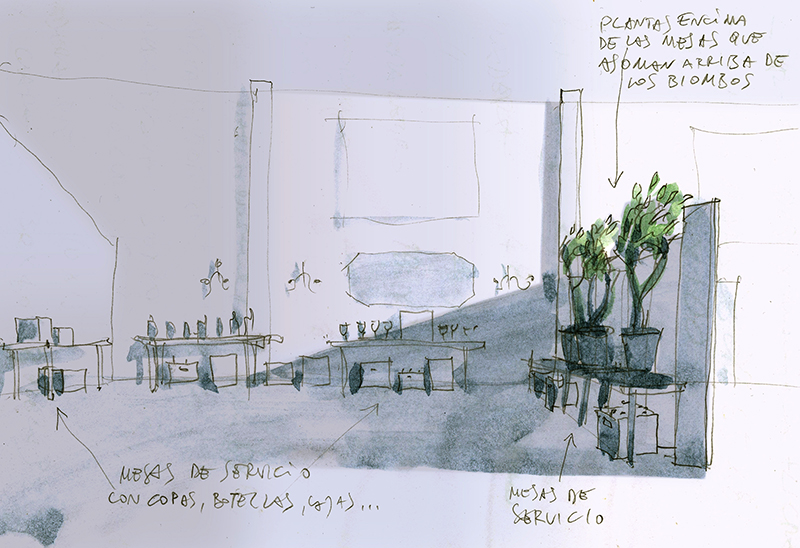 PLANTAS ENCIMA
DE LAS MESAS QUE
ASOMAN ARRIBA DE
LOS BIOMBOS
MESAS DE SERVICIO
CON COPAS, BOTELLAS, CAJAS...
MESAS DE
SERVICIO